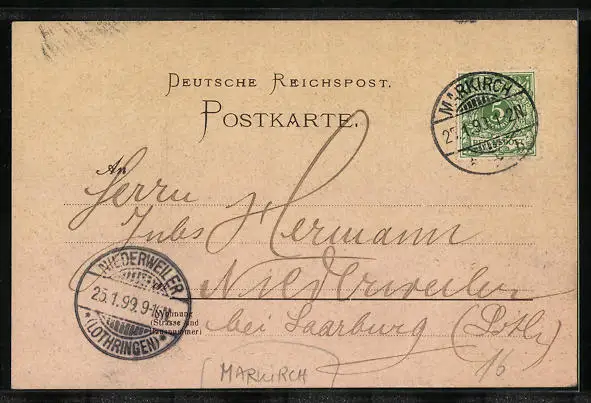 DEUTSCHE REICHSPOST.
POSTKARTE.
MARKIRCH
5
An
Herrn
Jules Hermann
in
Niederweiler
NIEDERWEILER
25.1.99. 9-
*(LOTHRINGEN)*
Wohnung
(Strasse und
Hausnummer)
bei Saarburg (Lothr)
MARKIRCH